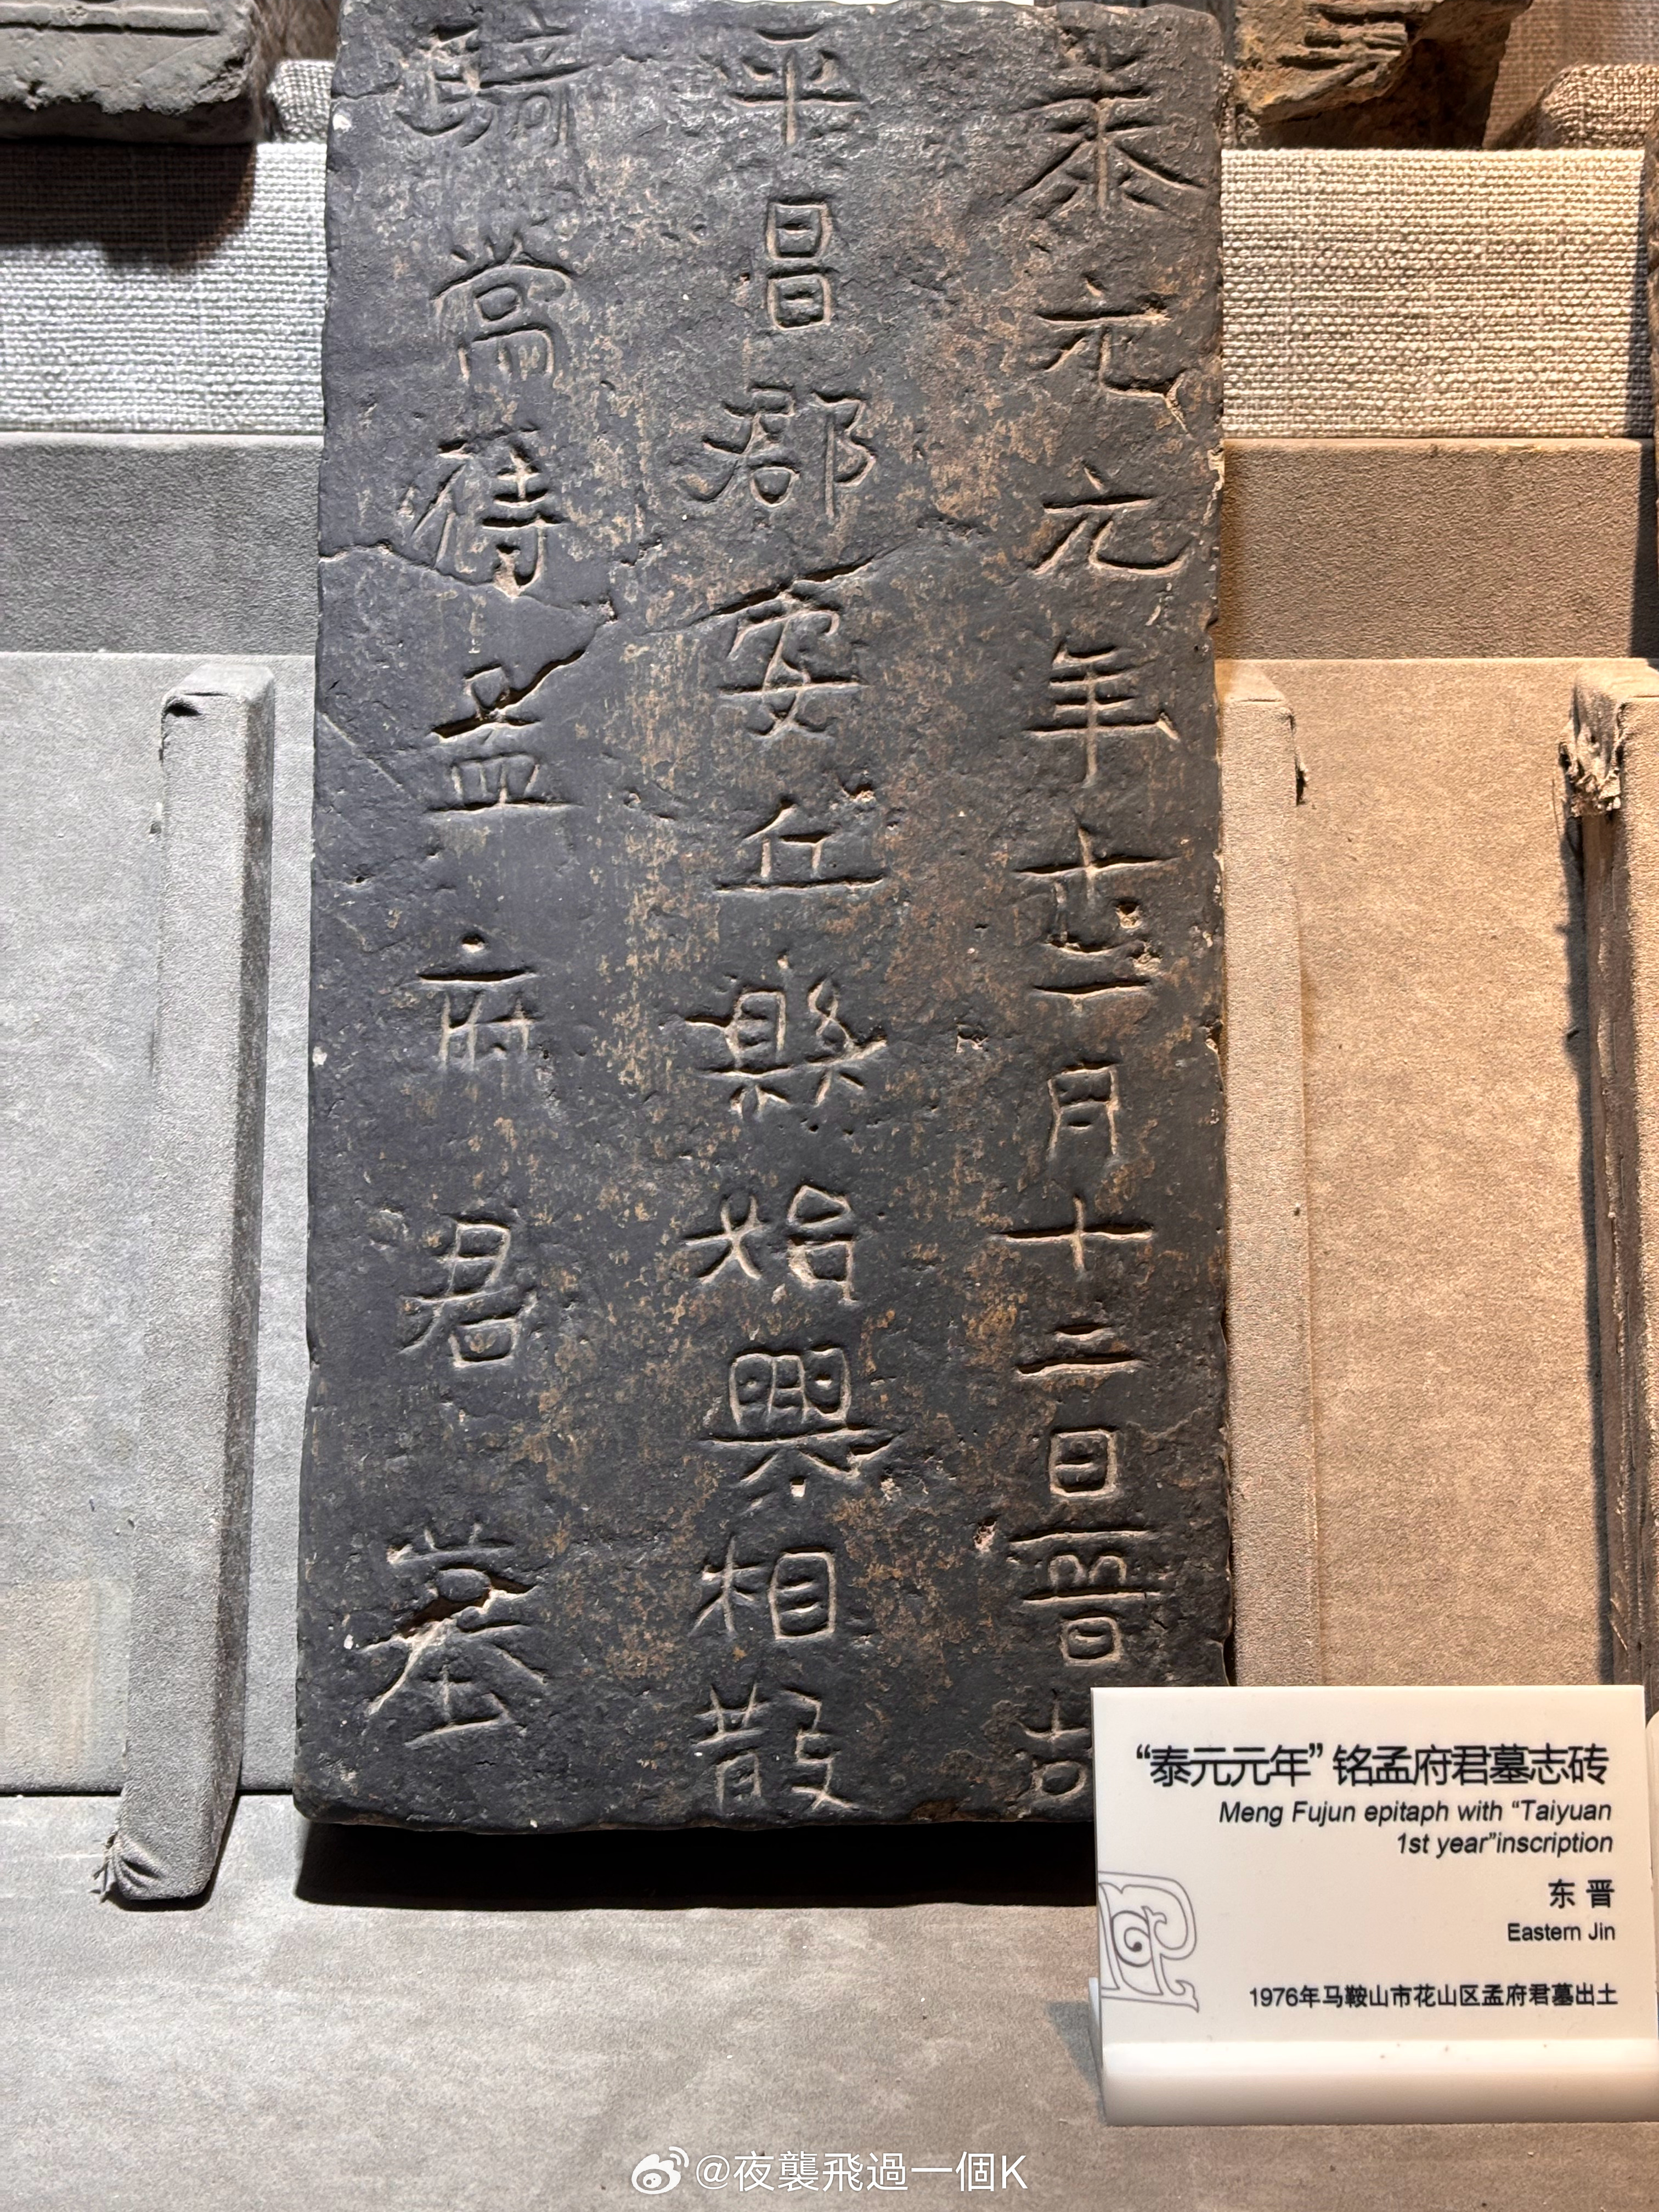 泰元元年十二月十二日晉故
平昌郡安丘縣始興相散
騎常侍孟府君墓
“泰元元年”铭孟府君墓志砖
Meng Fujun epitaph with “Taiyuan
1st year”inscription
东 晋
Eastern Jin
1976年马鞍山市花山区孟府君墓出土
@夜襲飛過一個K